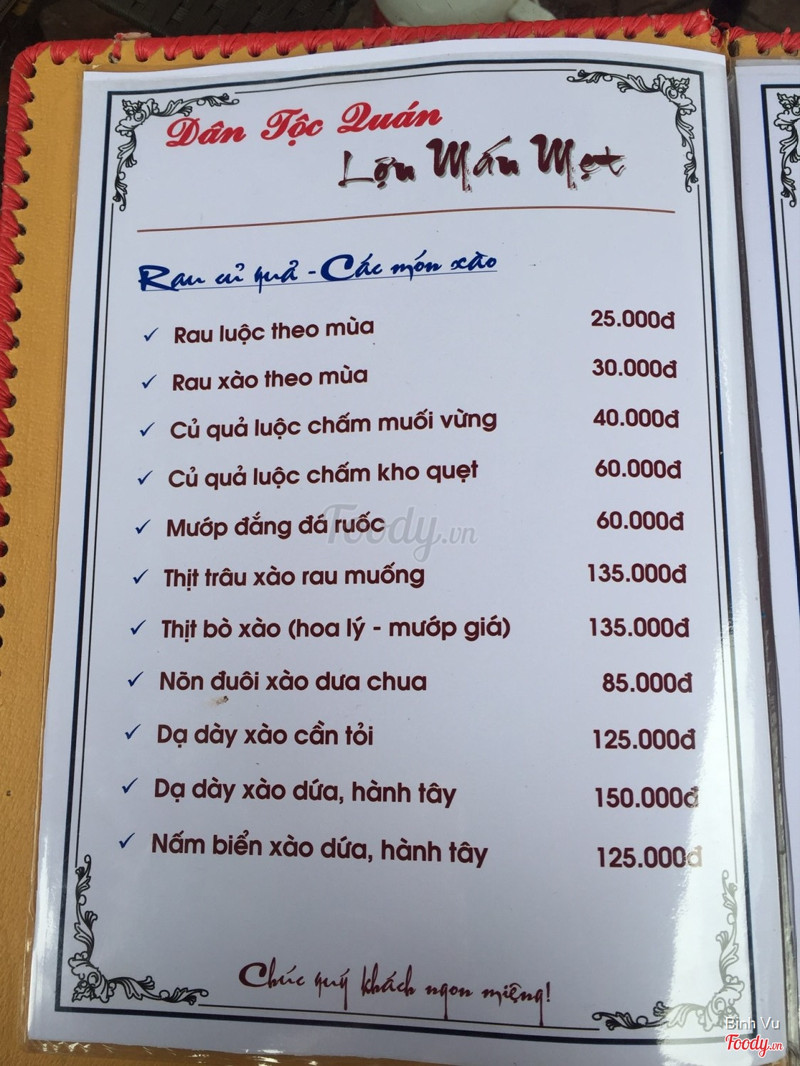 Dân Tộc Quán
Lợn Mán Mẹt
Rau củ quả - Các món xào
Rau luộc theo mùa 25.000đ
Rau xào theo mùa 30.000đ
Củ quả luộc chấm muối vừng 40.000đ
Củ quả luộc chấm kho quẹt 60.000đ
Mướp đắng đá ruốc 60.000đ
Thịt trâu xào rau muống 135.000đ
Thịt bò xào (hoa lý - mướp giá) 135.000đ
Nõn đuôi xào dưa chua 85.000đ
Dạ dày xào cần tỏi 125.000đ
Dạ dày xào dứa, hành tây 150.000đ
Nấm biển xào dứa, hành tây 125.000đ
Chúc quý khách ngon miệng!
Foody.vn
Binh Vu
Foody.vn